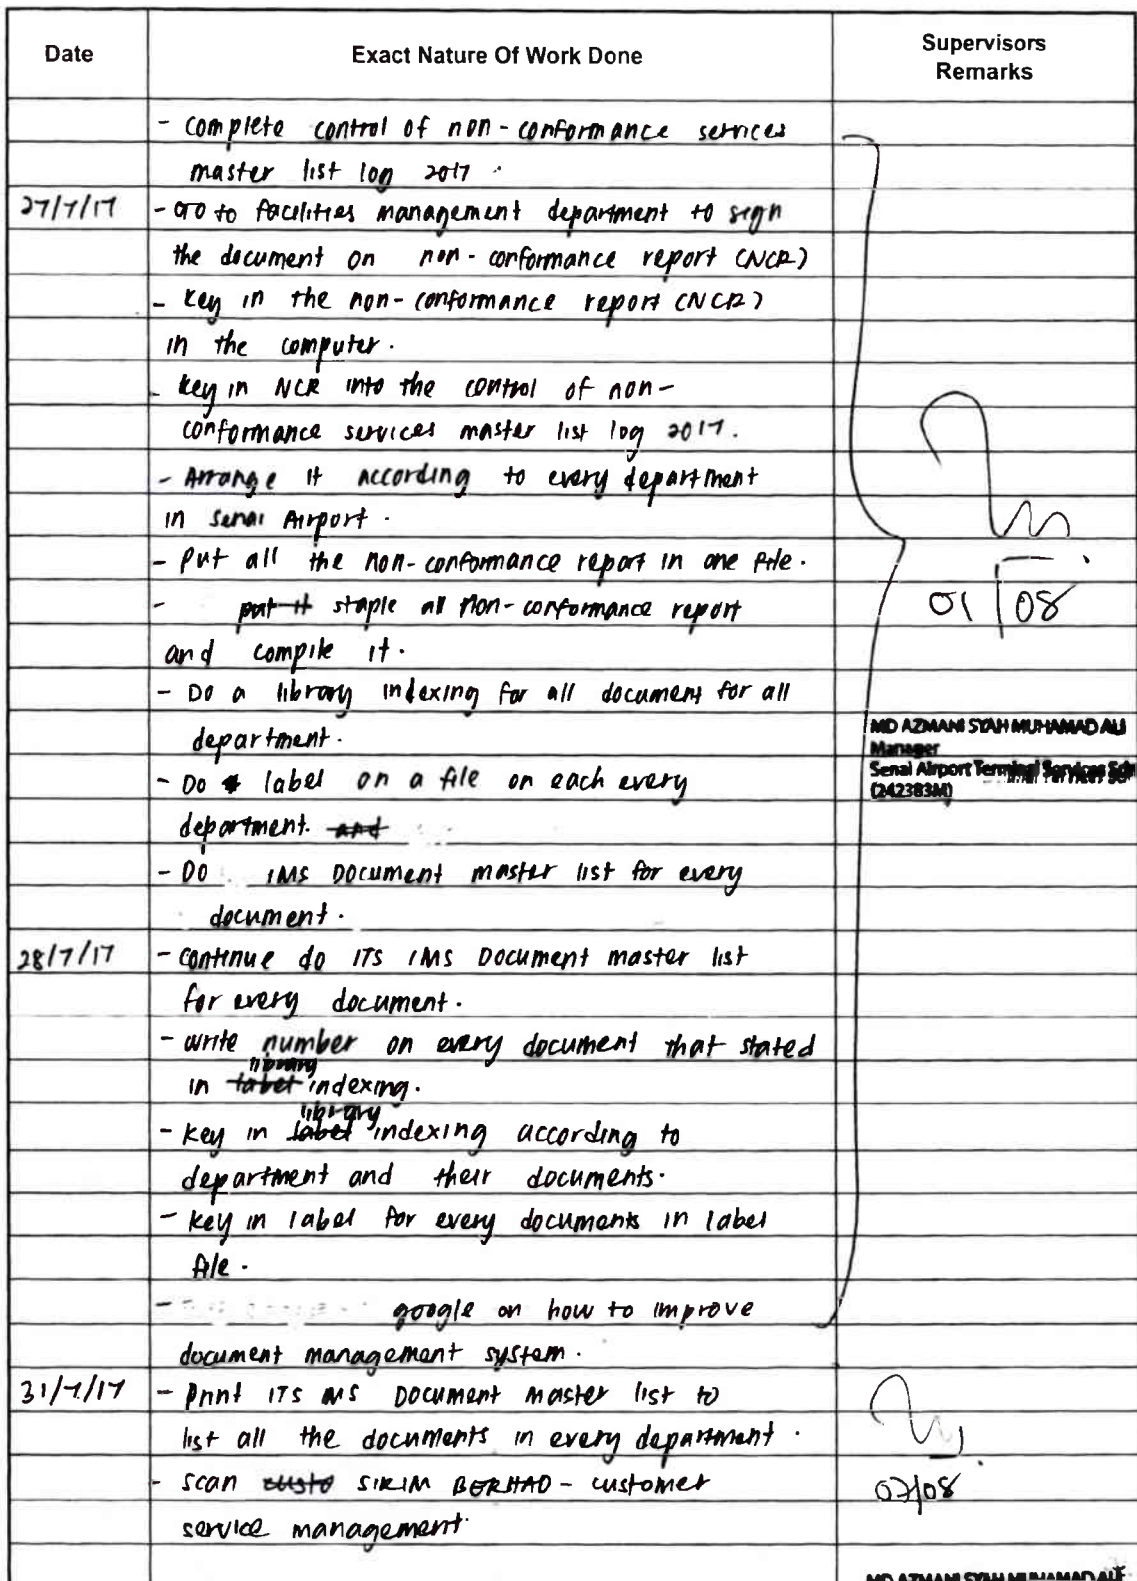 Date Exact Nature Of Work Done Supervisors
Remarks
- Complete control of non-conformance services
master list log 2017.
27/7/17 - Go to facilities management department to sign
the document on non-conformance report (NCR)
- Key in the non-conformance report (NCR)
in the computer.
- Key in NCR into the control of non-
conformance services master list log 2017.
- Arrange it according to every department
in Senai Airport.
- Put all the non-conformance report in one file.
- put it staple all non-conformance report
and compile it.
01/08
- Do a library indexing for all document for all
department.
MD AZMANI SYAH MUHAMAD ALI
Manager
Senai Airport Terminal Services Sdn
(242383M)
- Do label on a file on each every
department. and
- Do IMS Document master list for every
document.
28/7/17 - continue do ITS IMS Document master list
for every document.
- write number on every document that stated
in label library indexing.
- Key in label library indexing according to
department and their documents.
- Key in label for every documents in label
file.
- google on how to improve
document management system.
31/7/17 - Print ITS IMS Document master list to
list all the documents in every department.
- scan custo SIRIM BERHAD - customer
service management.
07/08
MD AZMANI SYAH MUHAMAD ALI